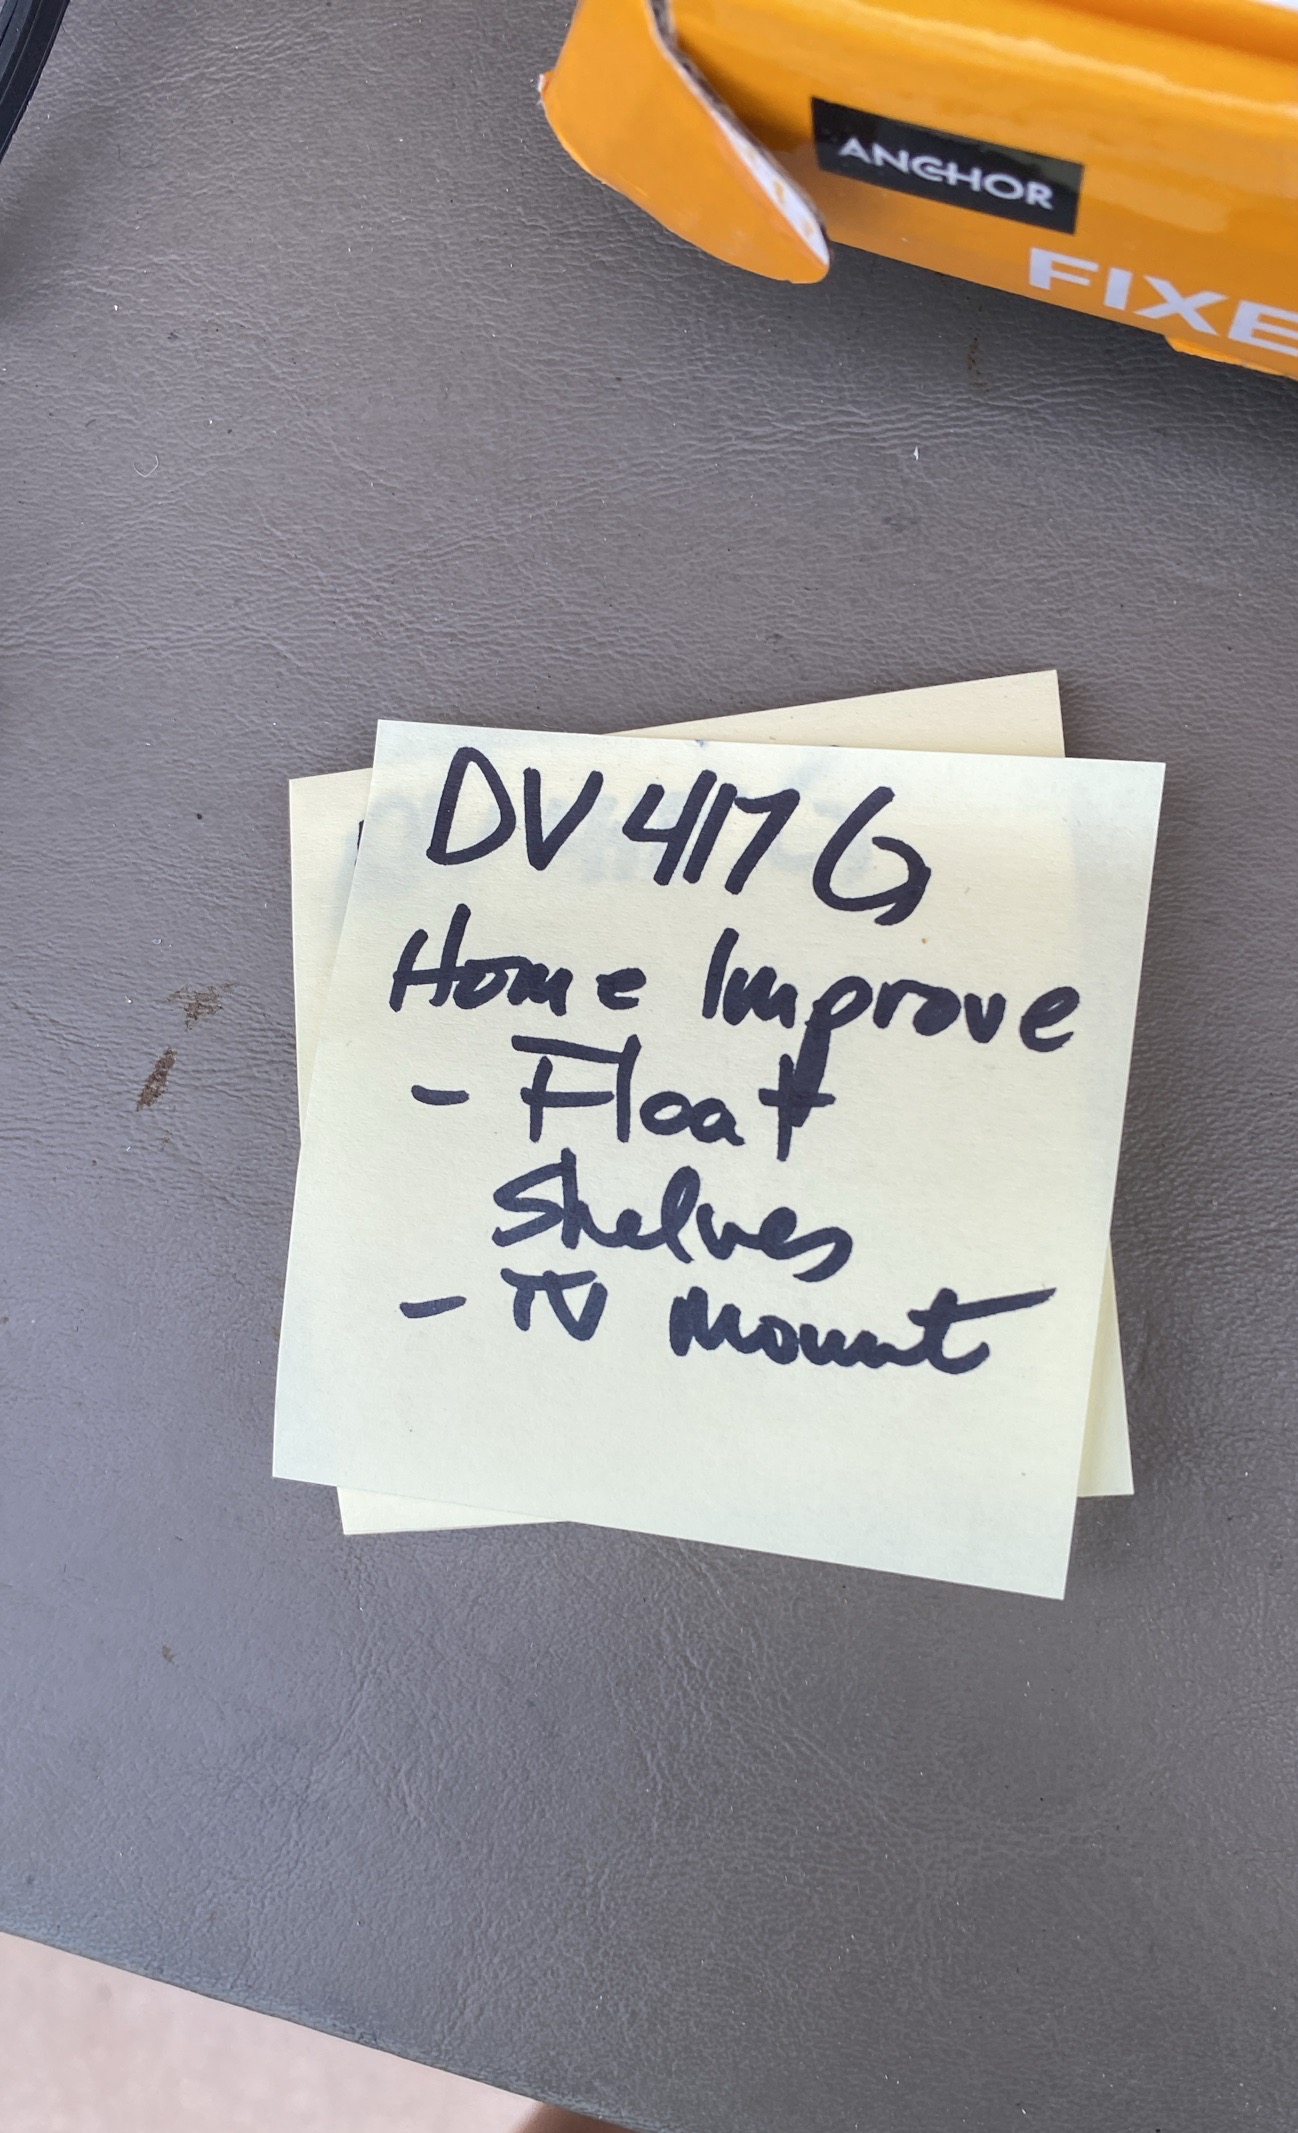 ANCHOR
FIXE
DV 417 G
Home Improve
- Float
Shelves
- TV Mount